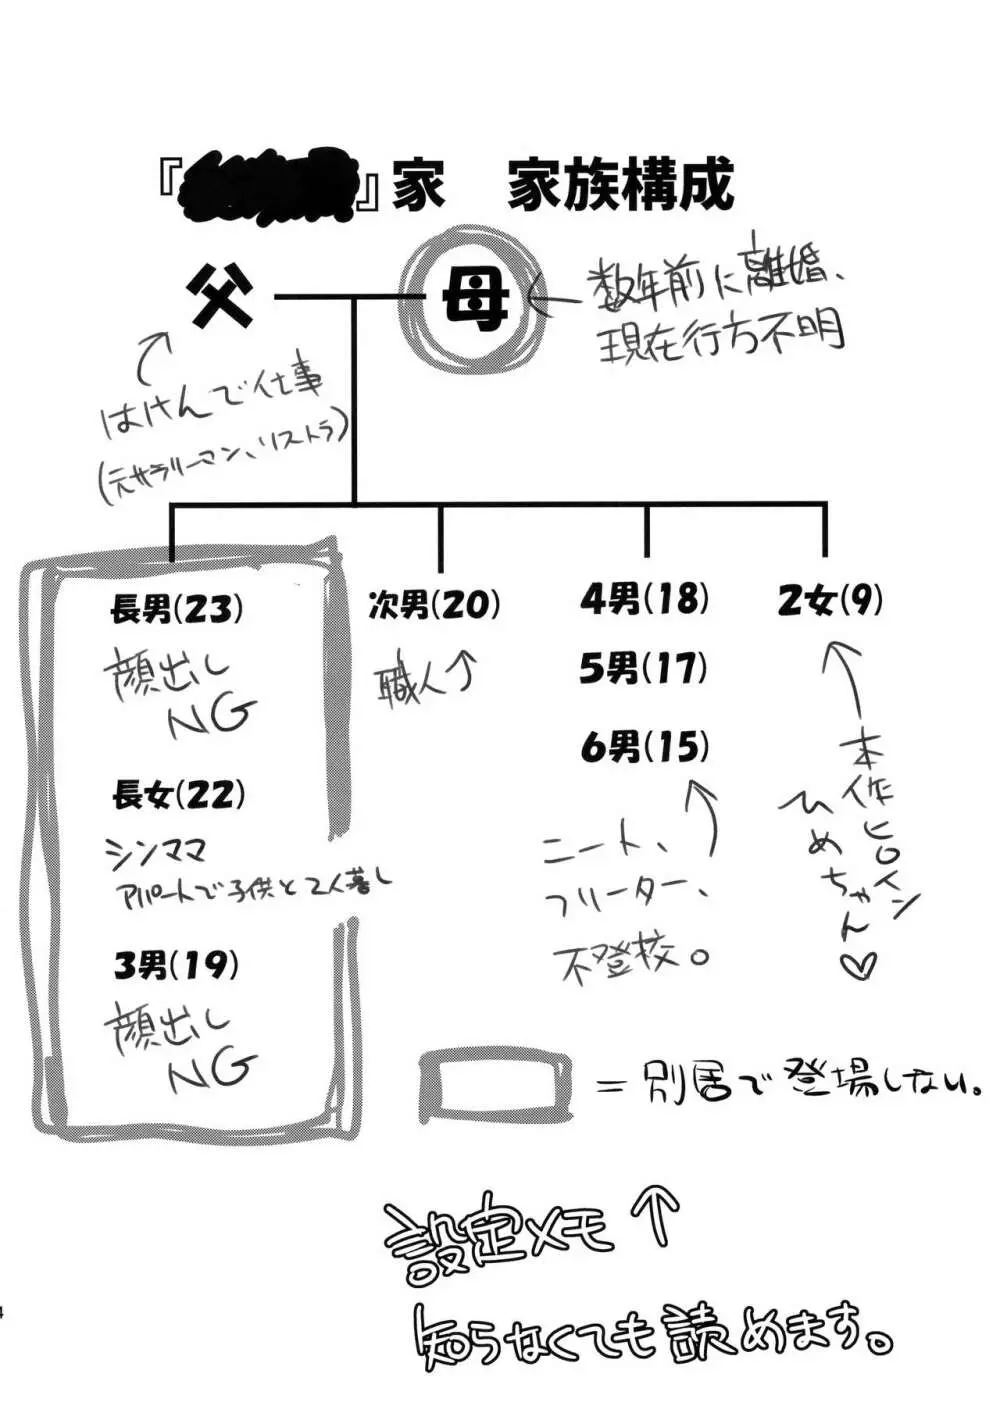 『』家 家族構成
父
母
数年前に離婚、
現在行方不明
はけんで仕事
(元サラリーマン、リストラ)
長男(23)
顔出し
NG
長女(22)
シンママ
アパートで子供と2人暮し
3男(19)
顔出し
NG
次男(20)
職人
4男(18)
5男(17)
6男(15)
ニート、
フリーター、
不登校。
2女(9)
本作ヒロイン
ひめちゃん♡
= 別居で登場しない。
設定メモ
知らなくても読めます。
4